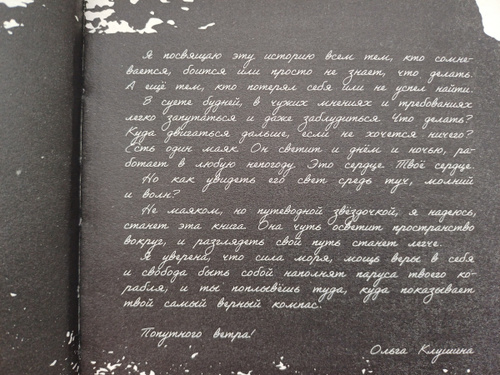 Я посвящаю эту историю всем тем, кто сомне-
вается, боится или просто не знает, что делать.
А ещё тем, кто потерял себя или не успел найти.
В суете будней, в чужих мнениях и требованиях
легко запутаться и даже заблудиться. Что делать?
Куда двигаться дальше, если не хочется ничего?
Есть один маяк. Он светит и днём и ночью, ра-
ботает в любую непогоду. Это сердце. Твоё сердце.
Но как увидеть его свет средь туч, молний
и волн?
Не маяком, но путеводной звёздочкой, я надеюсь,
станет эта книга. Она чуть осветит пространство
вокруг, и разглядеть свой путь станет легче.
Я уверена, что сила моря, мощь веры в себя
и свобода быть собой наполнят паруса твоего ко-
рабля, и ты поплывёшь туда, куда показывает
твой самый верный компас..
Попутного ветра!
Ольга Клушина